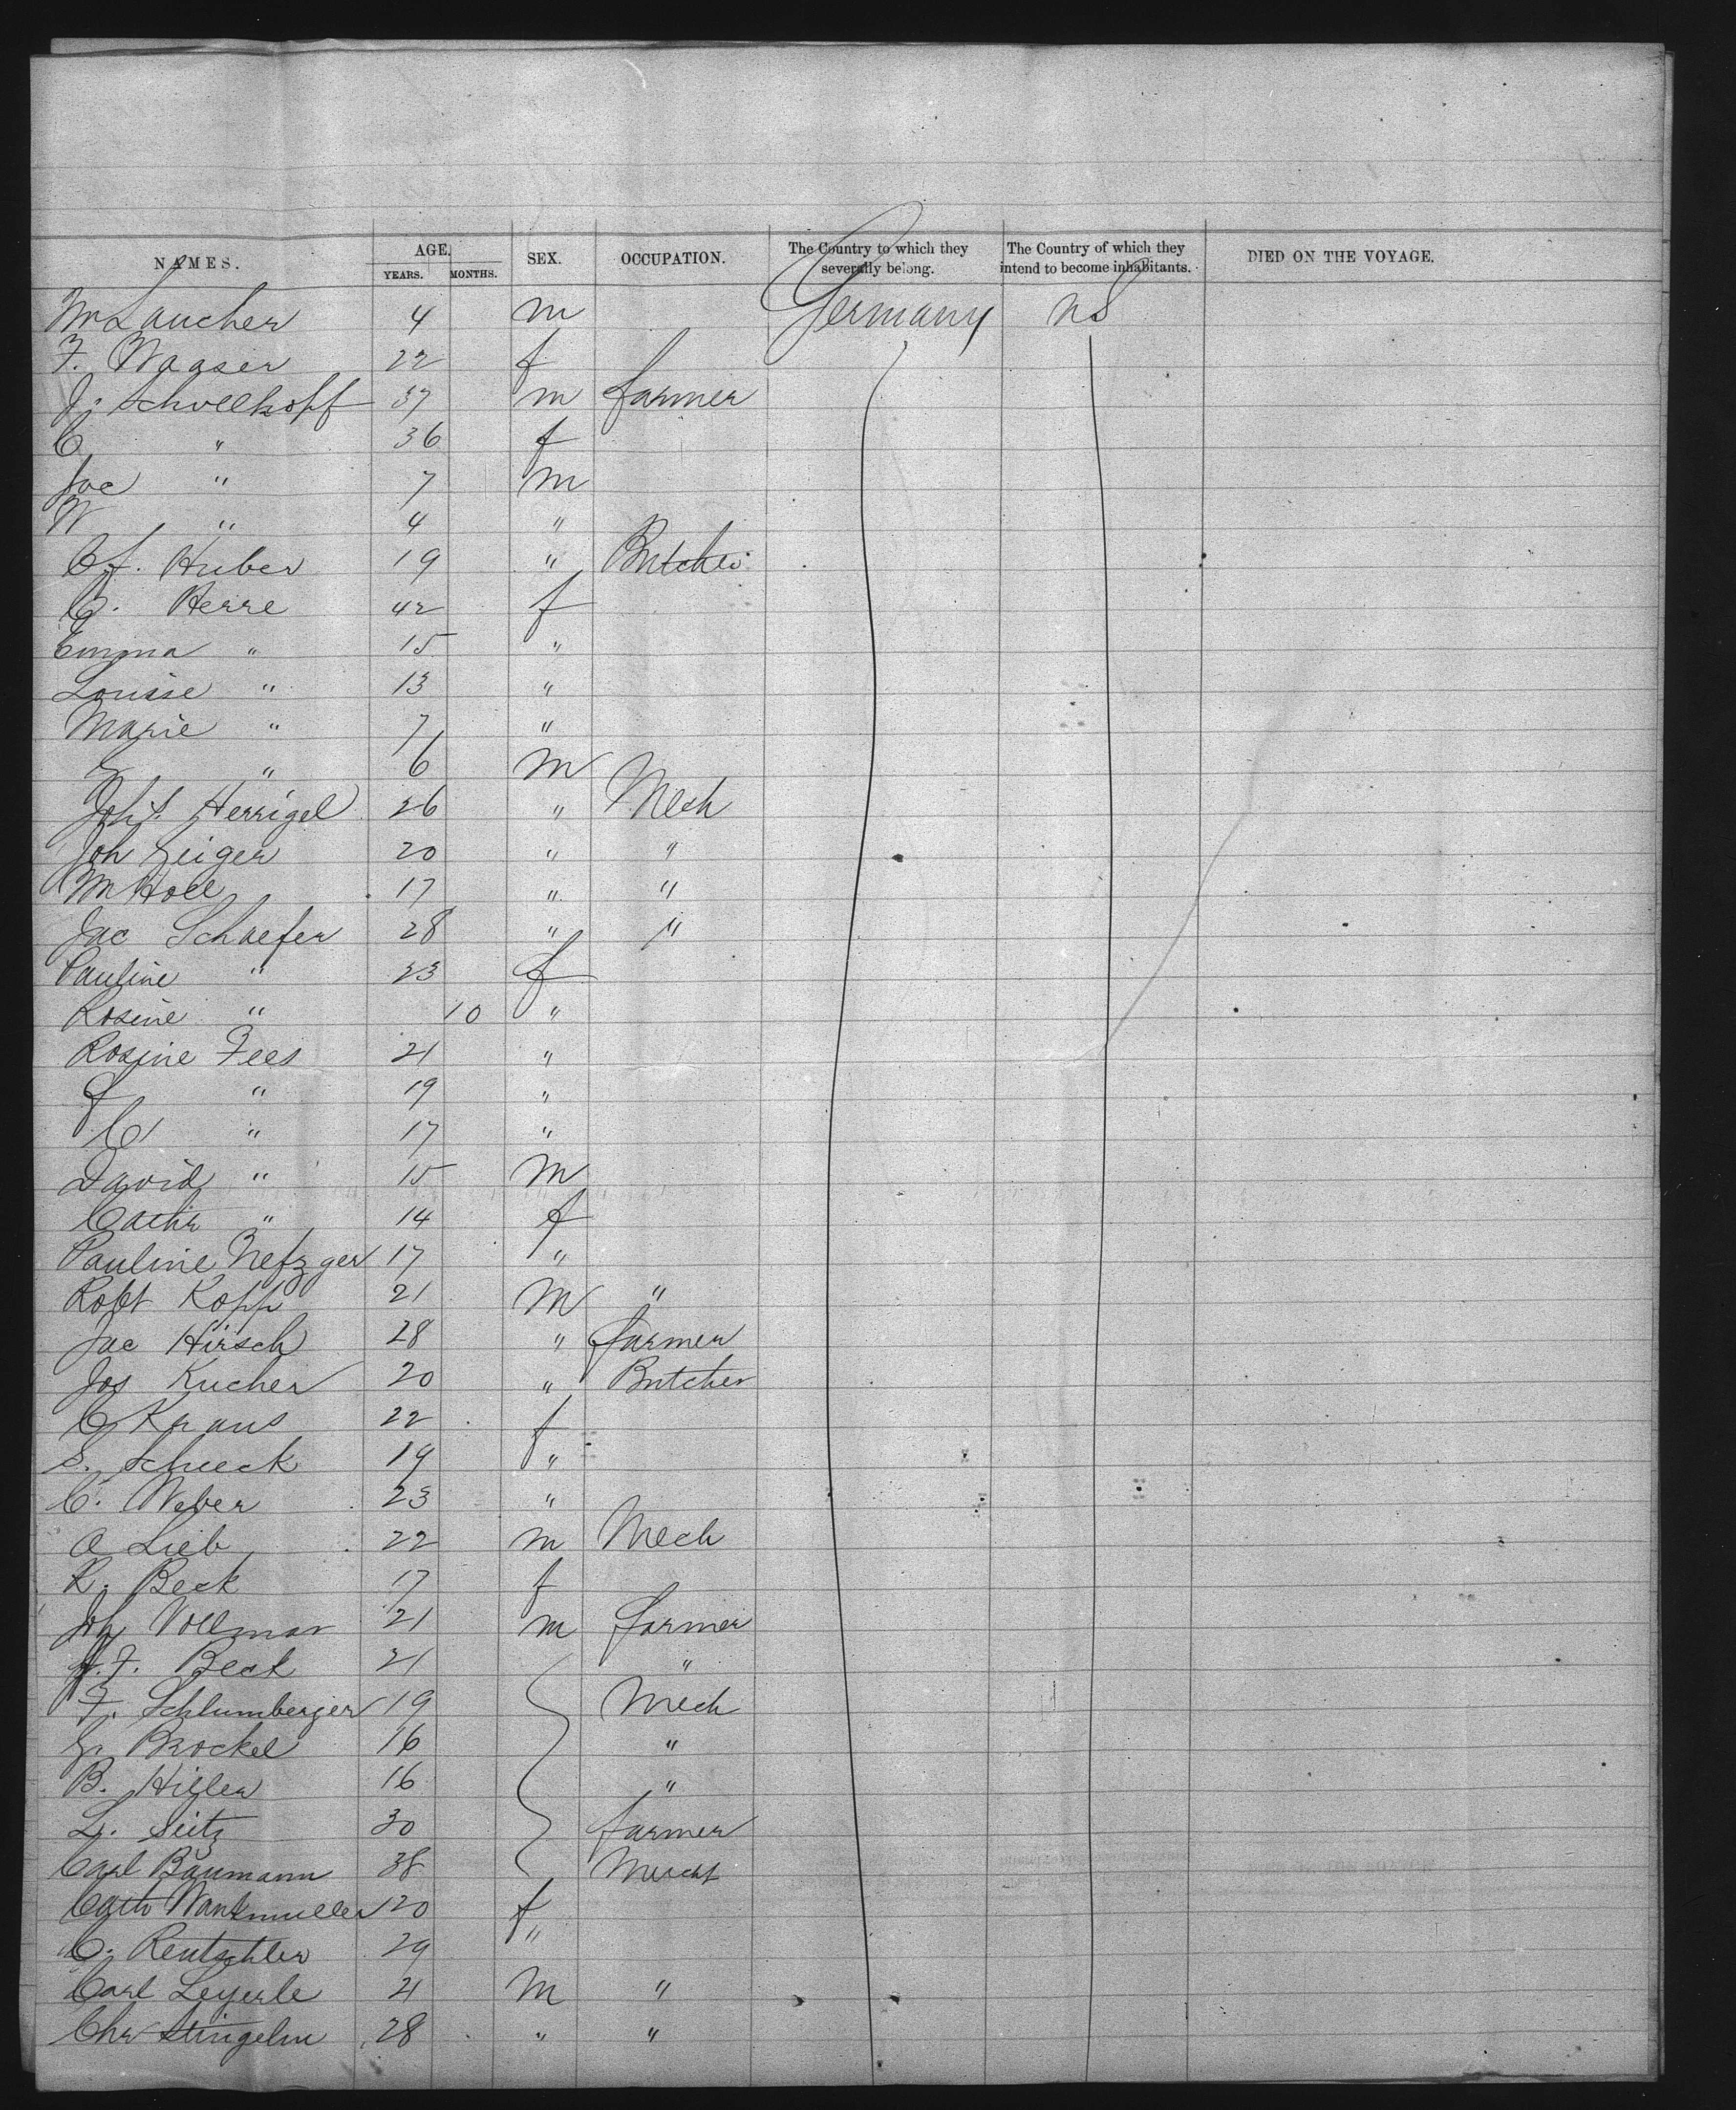 NAMES. AGE. SEX. OCCUPATION. The Country to which they severally belong. The Country of which they intend to become inhabitants. DIED ON THE VOYAGE.
YEARS. MONTHS.
M Laucher 4 m Germany US
F. Waaser 22 f
J. Schvellkopf 37 m farmer
C " 36 f
Jac " 7 m
W " 4 "
C f. Huber 19 " Butcher
C. Herre 42 f
Emma " 15 "
Louise " 13 "
Marie " 7 "
G " 6 M
Joh f. Herrigel 26 " Mech
Joh Geiger 20 " "
M Holl 17 " "
Jac Schaefer 28 " "
Pauline " 23 f
Rosine " 10 "
Rosine Fees 21 "
J " 19 "
C " 17 "
David " 15 M
Cathr " 14 f
Pauline Nefzger 17 "
Robt Kopp 21 M "
Jac Hirsch 28 " farmer
Jos Kucher 20 " Butcher
C Kraus 22 f
S. Scheeck 19 "
C. Weber 23 "
A Lieb 22 m Mech
R. Beck 17 f
Joh Vollmar 21 m farmer
J. F. Beck 21 "
F. Schlumberger 19 Mech
G. Brockel 16 "
B. Hiller 16 "
L. Seitz 30 farmer
Carl Baumann 38 Mercht
Cath Wankmuller 20 f
C. Rentschler 29 "
Carl Leyerle 21 M "
Chr Stingelin 28 " "